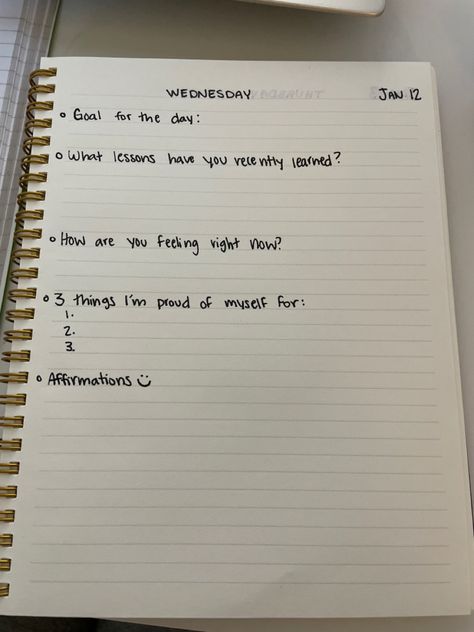 WEDNESDAY JAN 12
○ Goal for the day:
○ What lessons have you recently learned?
○ How are you feeling right now?
○ 3 things I'm proud of myself for:
1.
2.
3.
○ Affirmations ☺